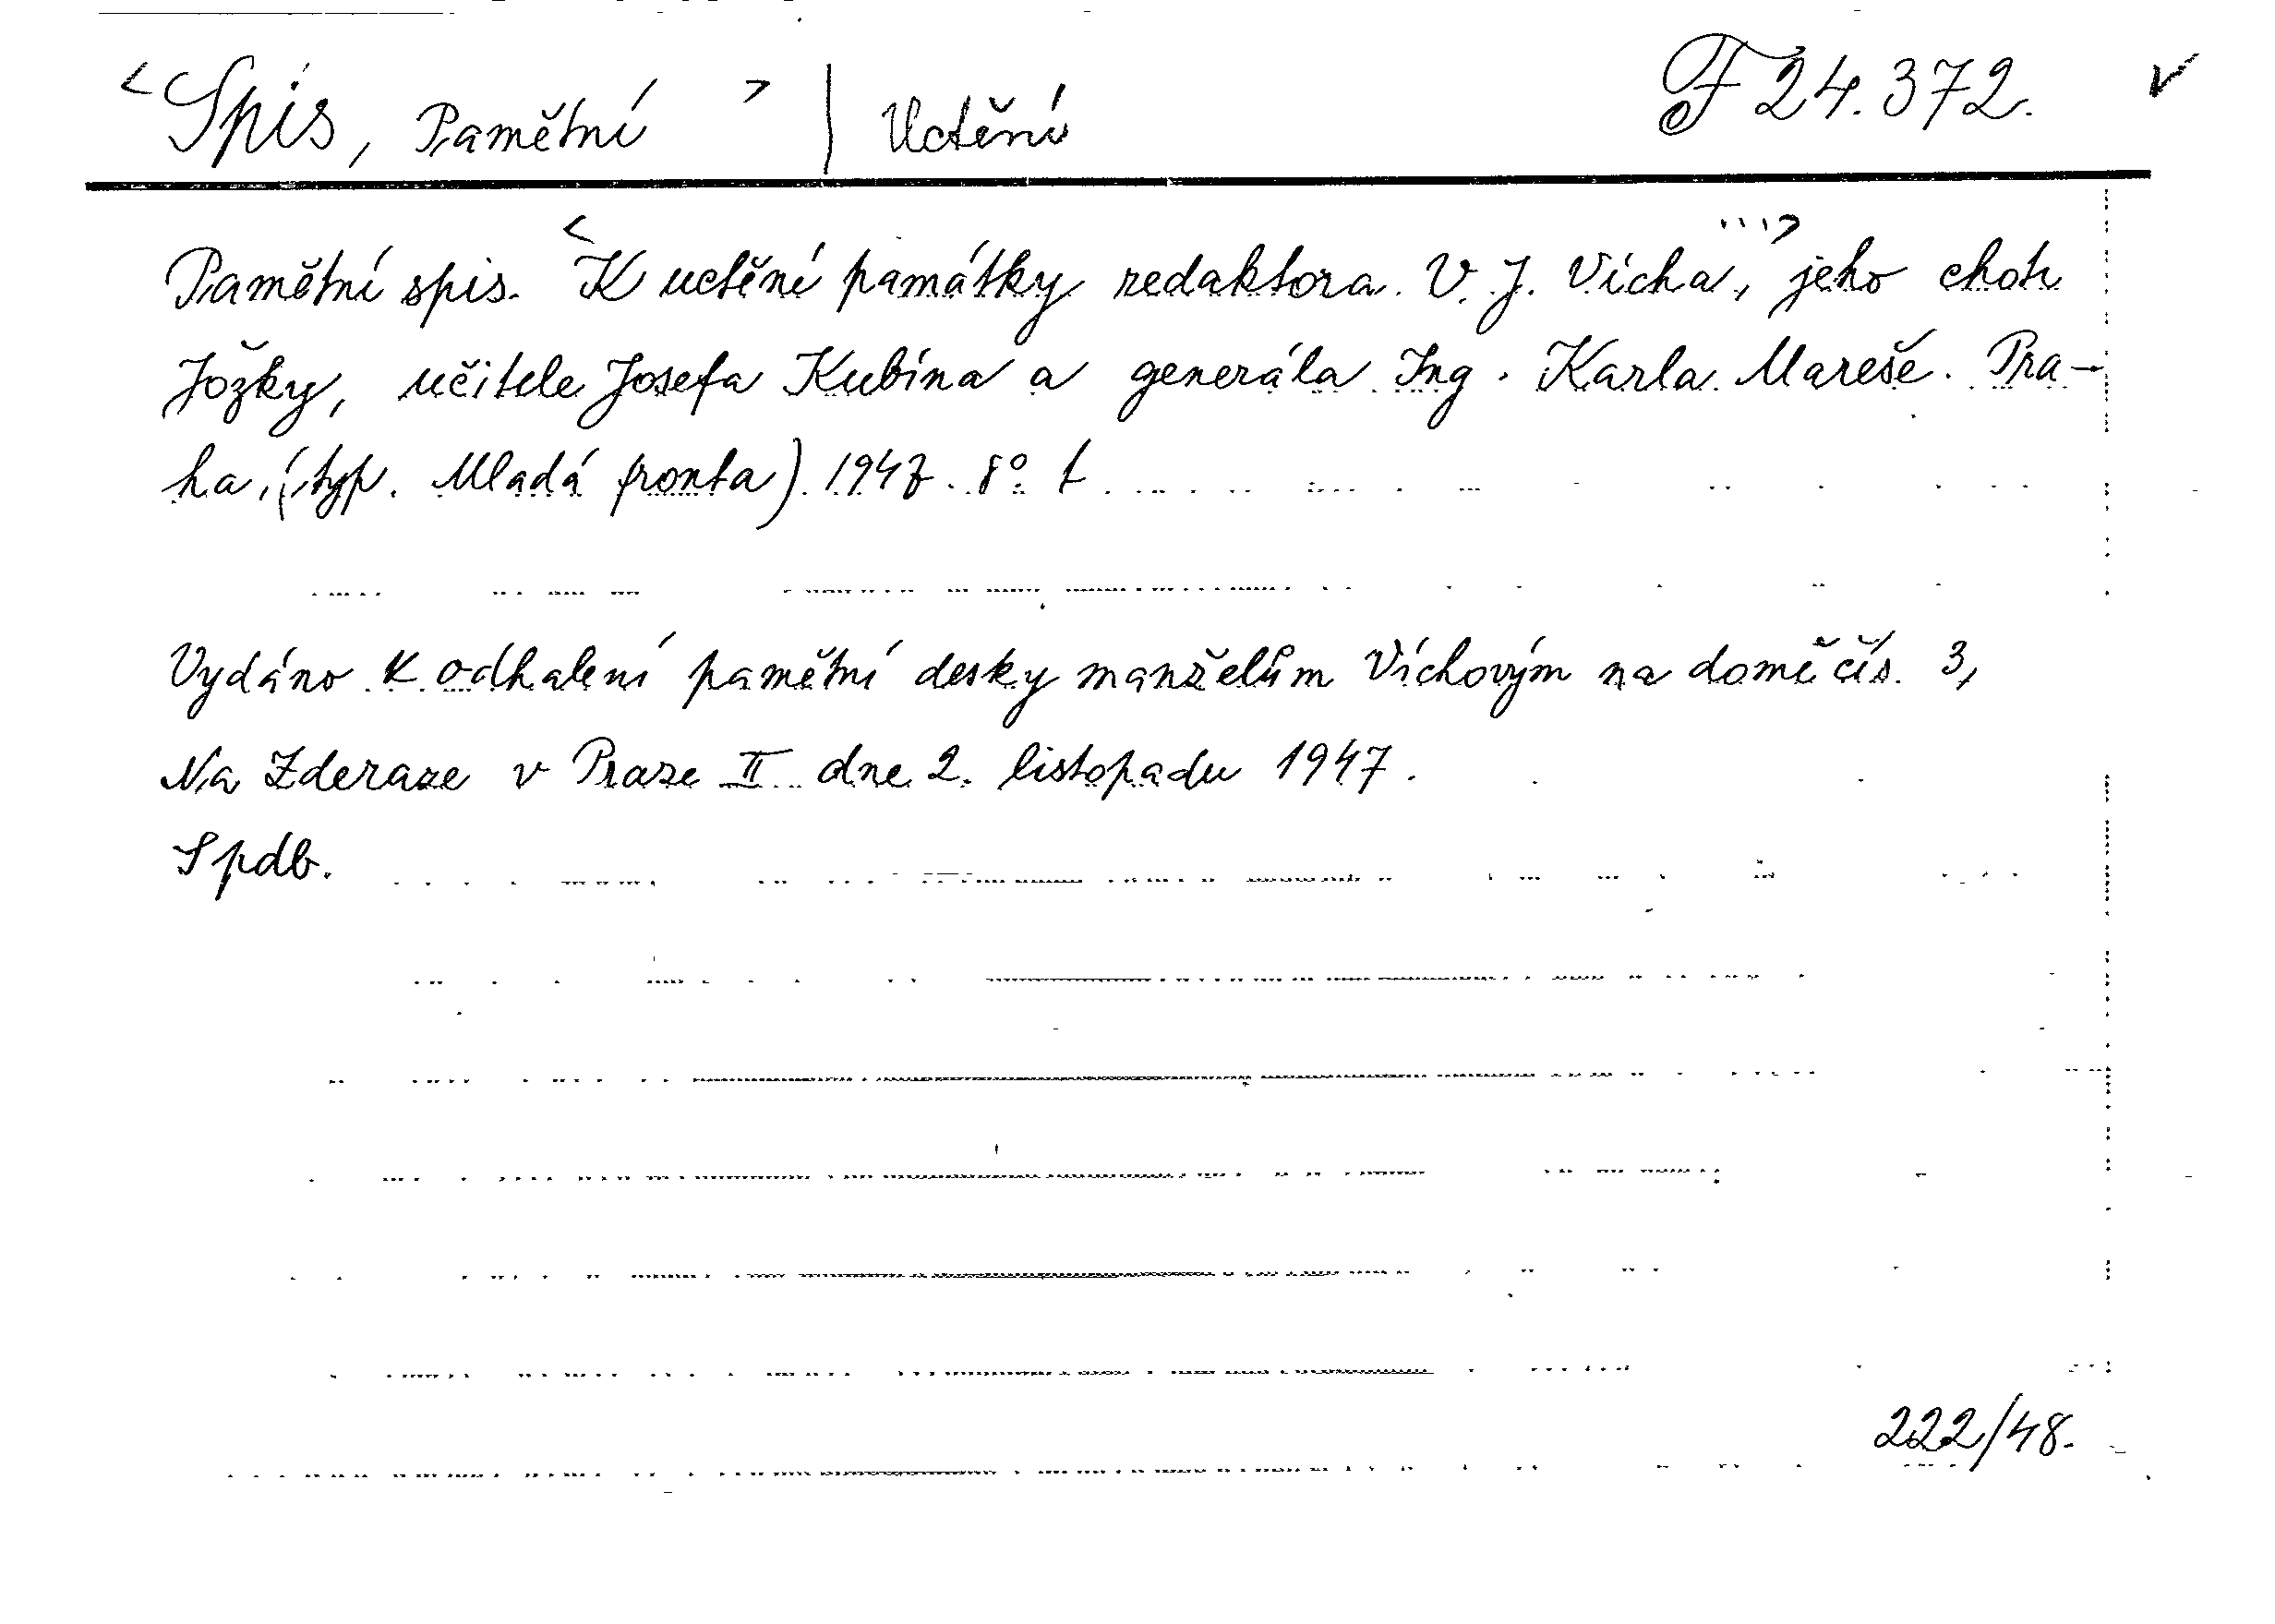 <Spis, Pamětní > | Uctění F 24.372. ✓
Pamětní spis. <K uctění památky redaktora V. J. Vícha, ...> jeho choti
Jožky, učitele Josefa Kubína a generála Ing. Karla Mareše. Pra-
ha, (typ. Mladá fronta) 1947. 8° t
Vydáno k odhalení pamětní desky manželům Víchovým na domě čís. 3,
Na Zderaze v Praze II dne 2. listopadu 1947.
Spdb.
222/48.